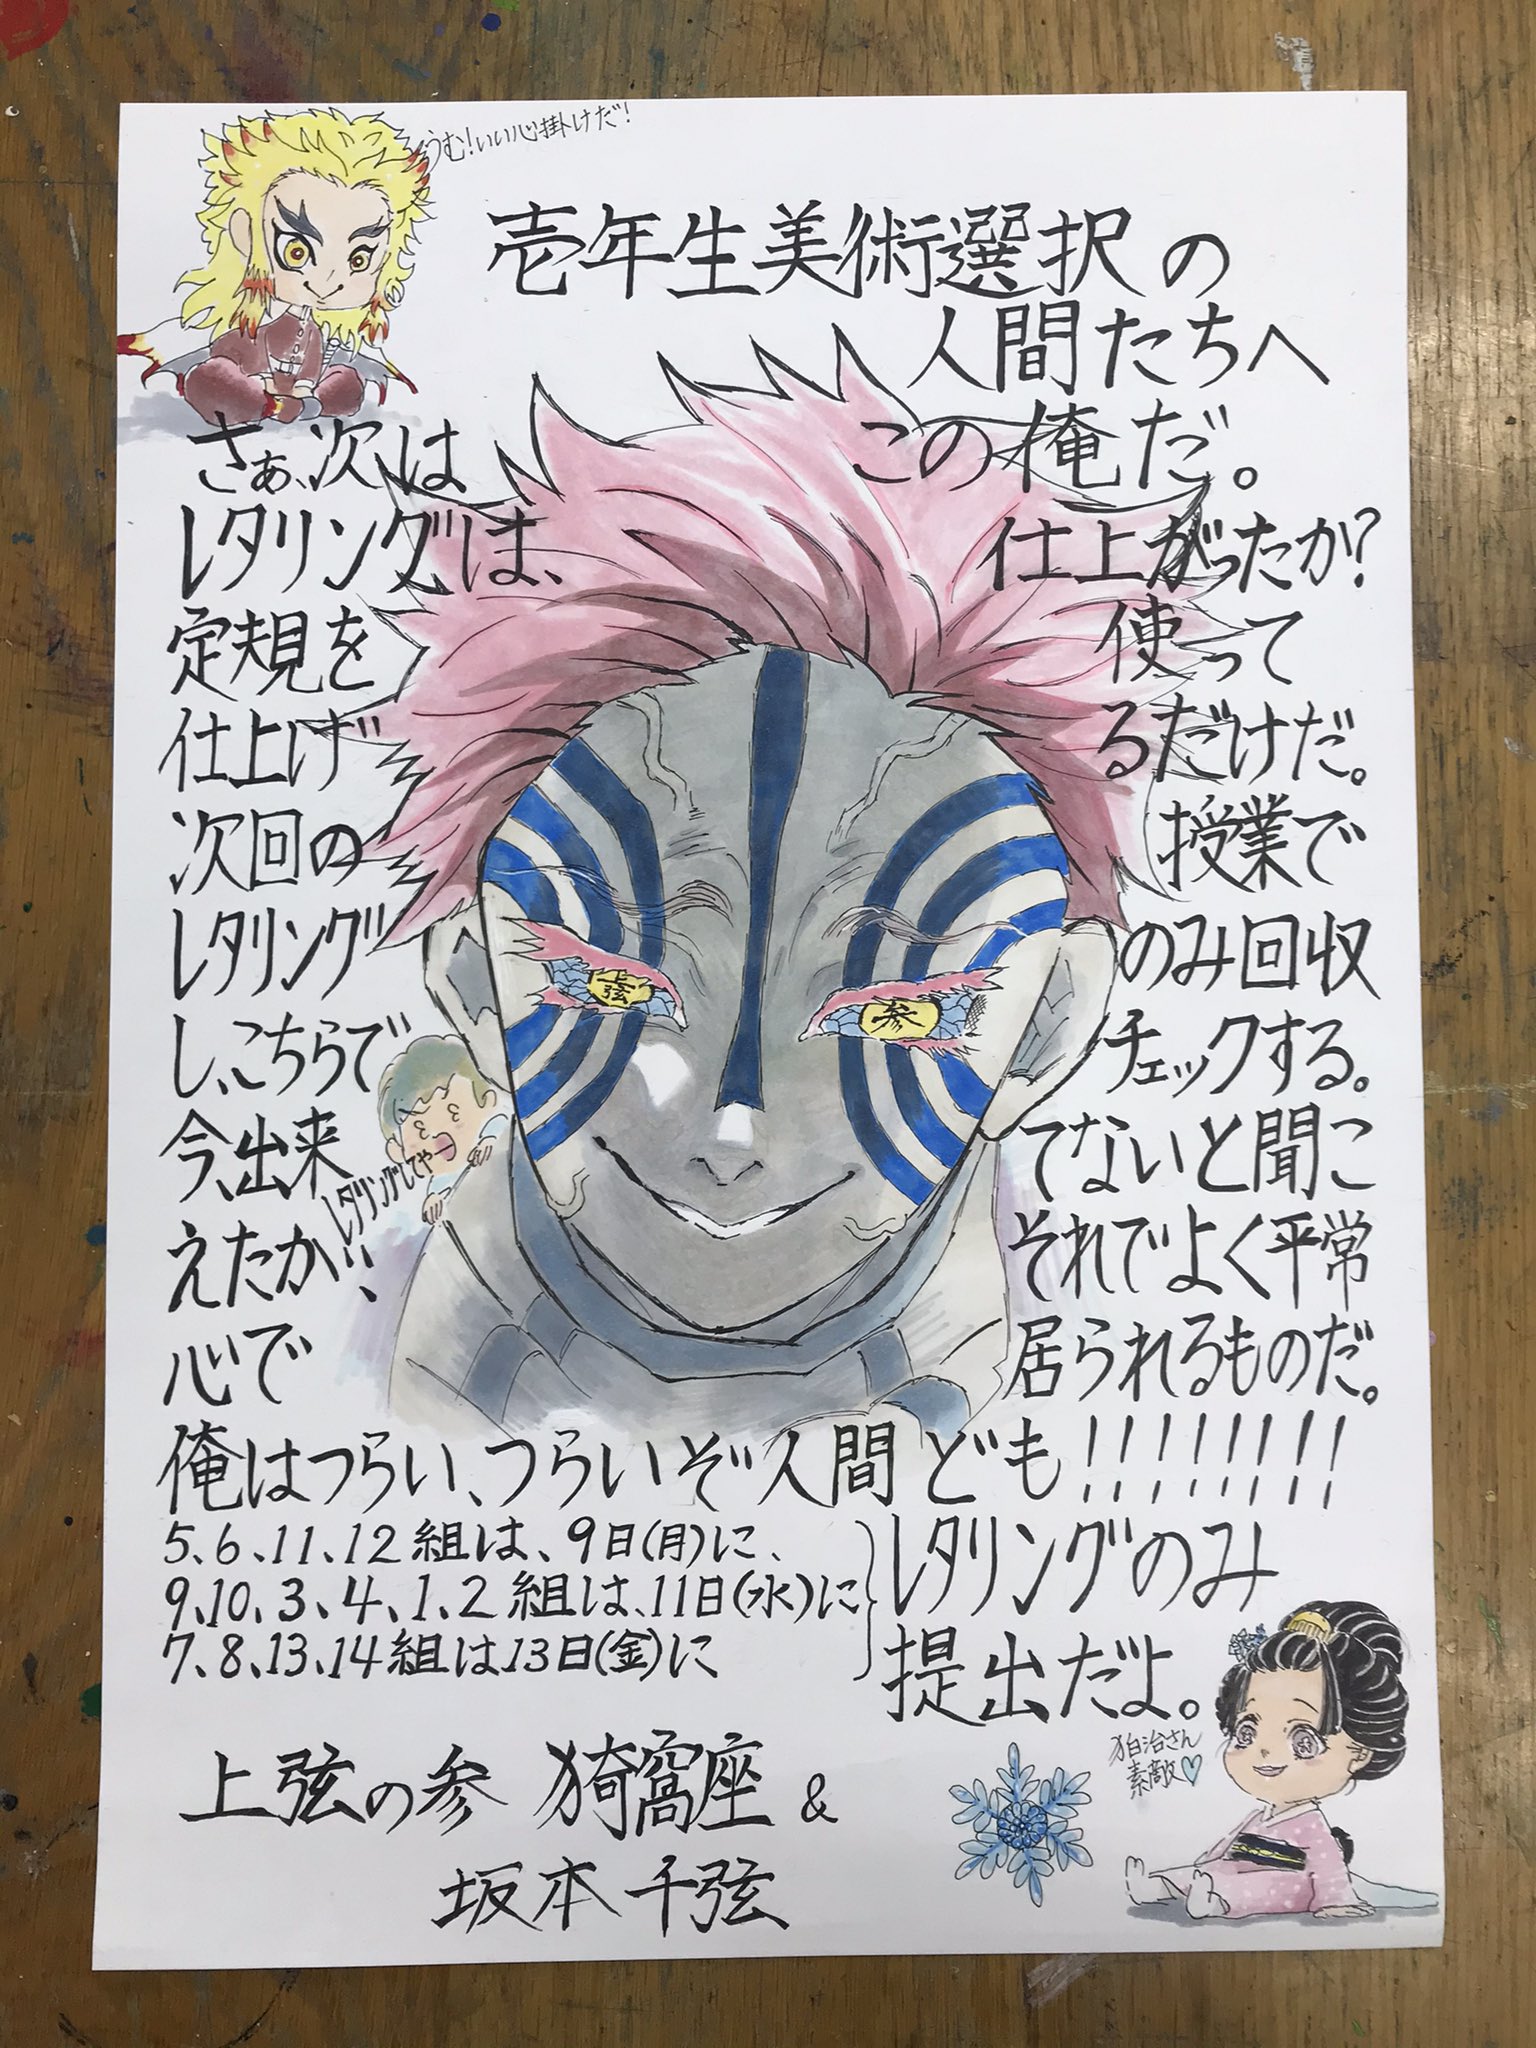 うむ!いい心掛けだ!
壱年生美術選択の
人間たちへ
さぁ、次は この俺だ。
レタリングは、 仕上がったか?
定規を 使って
仕上げ るだけだ。
次回の 授業で
レタリング のみ回収
し、こちらで チェックする。
今、出来 てないと聞こ
えたが、 それでよく平常
心で 居られるものだ。
レタリングしてやー
俺はつらい、つらいぞ人間ども!!!!!!!!
5、6、11、12組は、9日(月)に、
9、10、3、4、1、2組は、11日(水)に
7、8、13、14組は13日(金)に
レタリングのみ
提出だよ。
狛治さん
素敵♡
上弦の参 猗窩座 &
坂本千弦
上弦
参